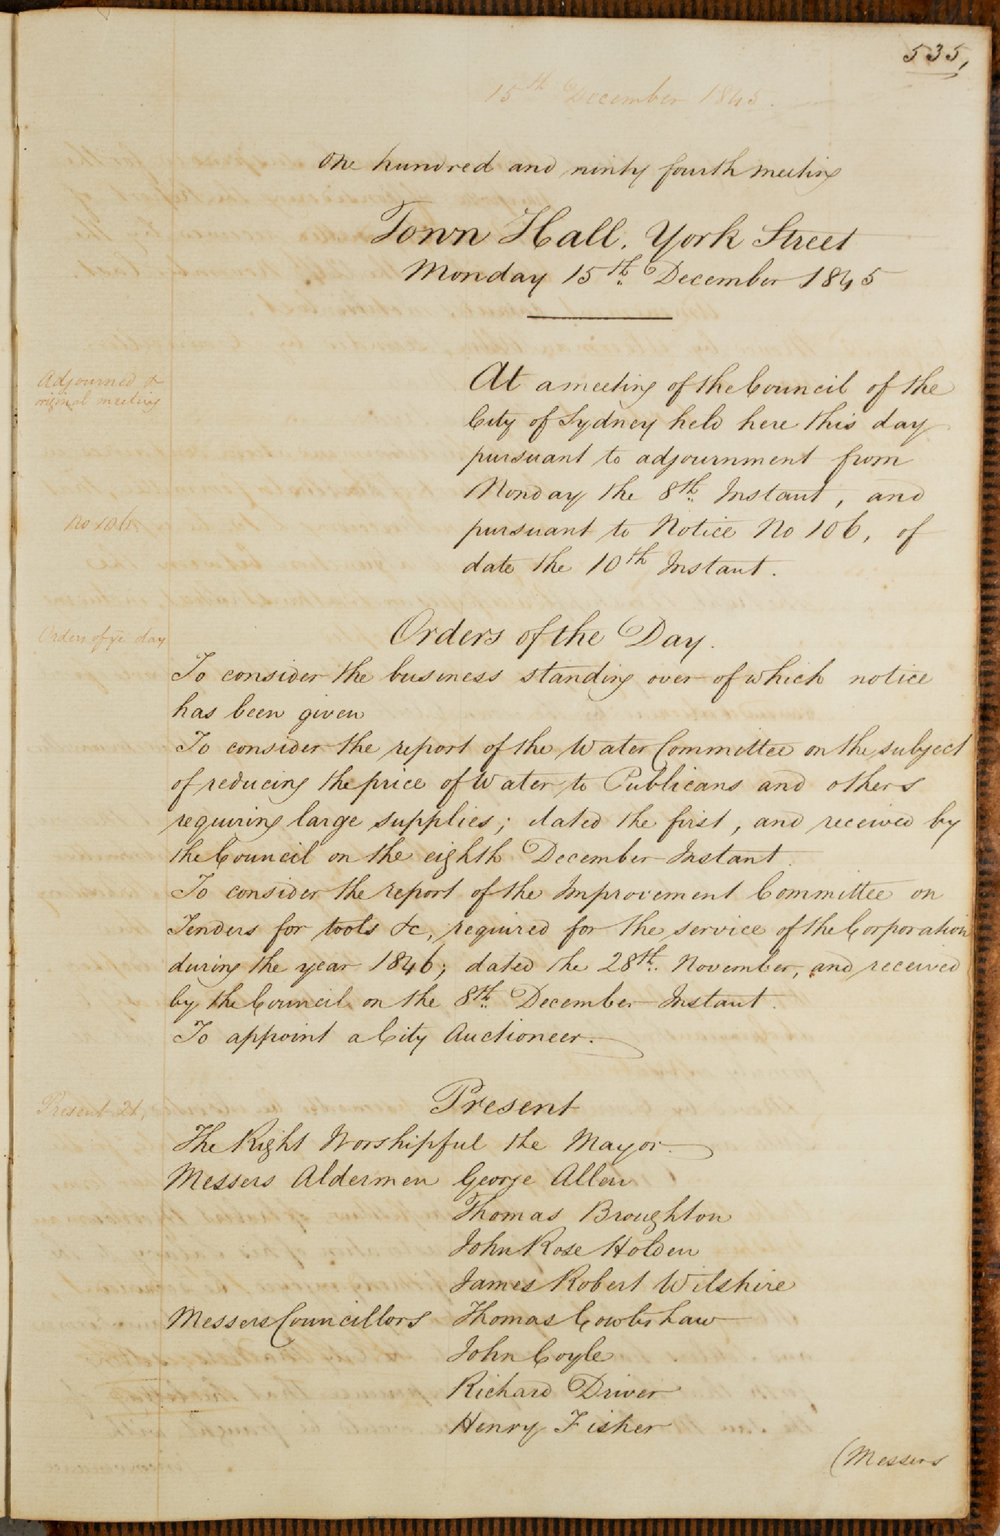 535,
15th December 1845.
One hundred and ninty fourth meeting
Town Hall. York Street
Monday 15th. December 1845
Adjourned &
original meeting
At a meeting of the Council of the
City of Sydney held here this day
pursuant to adjournment from
Monday the 8th. Instant, and
No 106
pursuant to Notice No 106, of
date the 10th Instant.
Orders of ye day
Orders of the Day.
To consider the business standing over of which notice
has been given
To consider the report of the Water Committee on the subject
of reducing the price of Water to Publicans and others
requiring large supplies; dated the first, and received by
the Council on the eighth December Instant.
To consider the report of the Improvement Committee on
Tenders for tools &c, required for the service of the Corporation
during the year 1846; dated the 28th. November, and received
by the Council on the 8th. December Instant.
To appoint a City Auctioneer.
Present 21,
Present
The Right Worshipful the Mayor.
Messers Aldermen George Allen
Thomas Broughton
John Rose Holden
James Robert Wilshire
Messers Councillors Thomas Cowlishaw
John Coyle
Richard Driver
Henry Fisher
(Messers